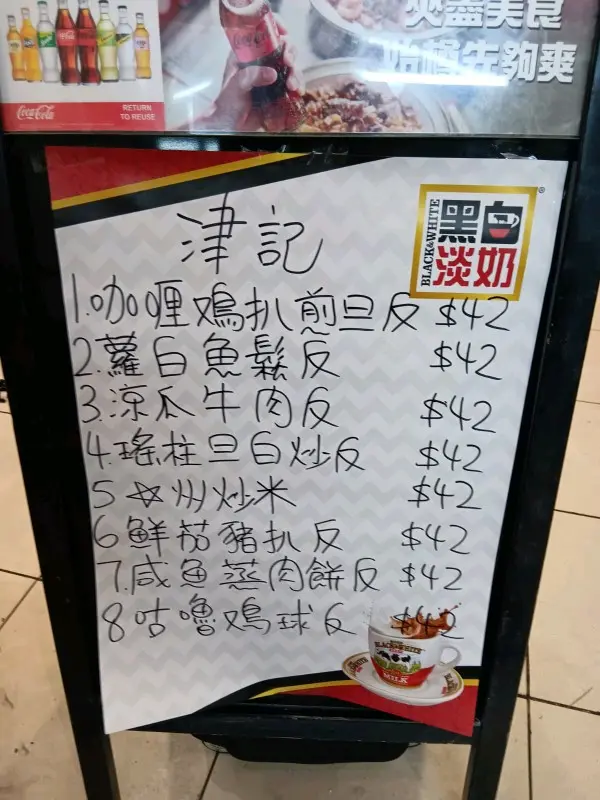 Coca-Cola
RETURN
TO REUSE
夾盡美食
始終先夠爽
津記
BLACK&WHITE
黑白
淡奶
®
1.咖喱鳮扒煎旦反 $42
2.蘿白魚鬆反 $42
3.涼瓜牛肉反 $42
4.瑤柱旦白炒反 $42
5☆州炒米 $42
6鮮茄豬扒反 $42
7.咸魚蒸肉餅反 $42
8咕嚕鳮球反 $42
BLACK&WHITE
MILK